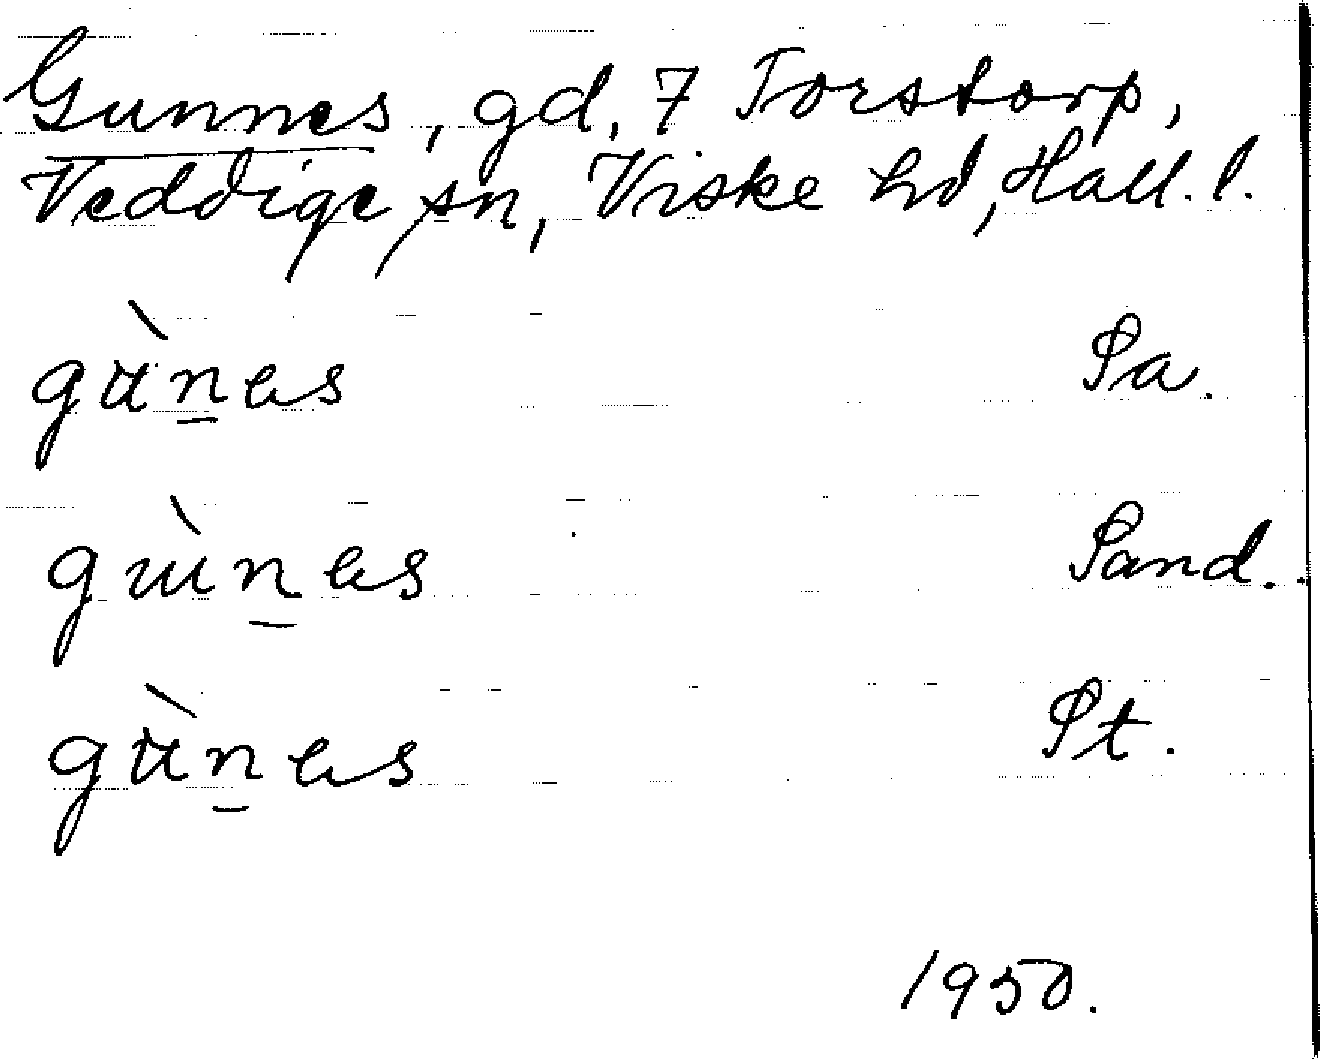 Gunnes, gd, 7 Torstorp,
Veddige sn, Viske hd, Hall. l.
gu̇̀n̲es Sa.
gɯ̀n̲es Sand.
gu̇̀n̲es St.
1950.